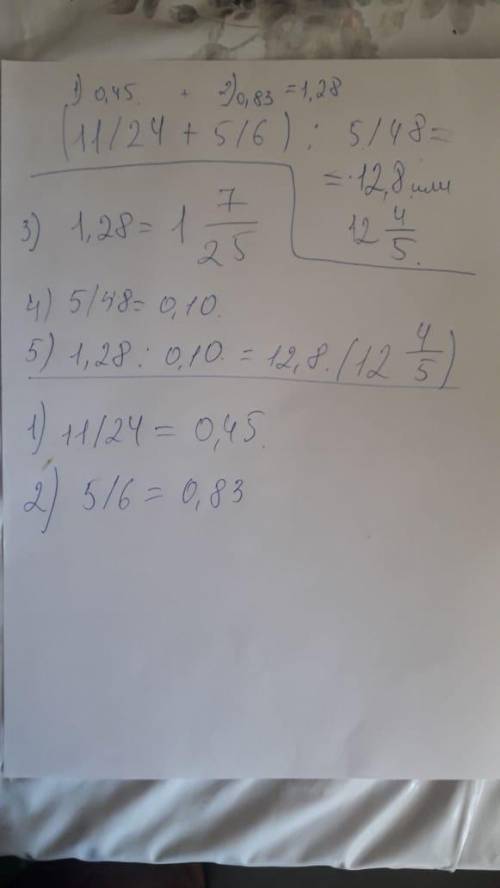 1) 0,45 + 2) 0,83 = 1,28
(11/24 + 5/6) : 5/48 =
= 12,8 или
12 4/5.
3) 1,28 = 1 7/25
4) 5/48 = 0,10.
5) 1,28 : 0,10. = 12,8. (12 4/5)
1) 11/24 = 0,45.
2) 5/6 = 0,83